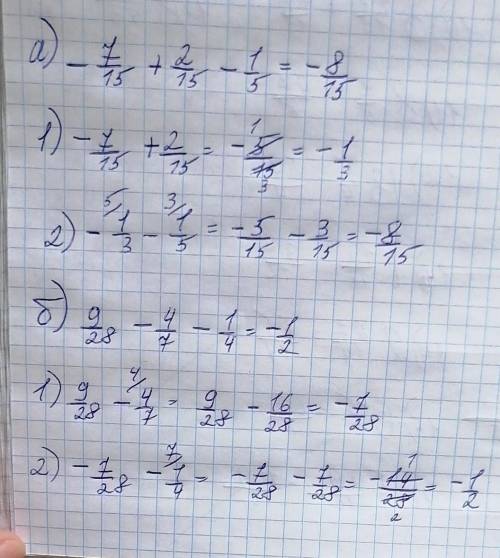 а) - 7/15 + 2/15 - 1/5 = - 8/15
1) - 7/15 + 2/15 = - 5/15 = - 1/3
2) - 1/3 - 1/5 = - 5/15 - 3/15 = - 8/15
б) 9/28 - 4/7 - 1/4 = - 1/2
1) 9/28 - 4/7 = 9/28 - 16/28 = - 7/28
2) - 7/28 - 1/4 = - 7/28 - 7/28 = - 14/28 = - 1/2